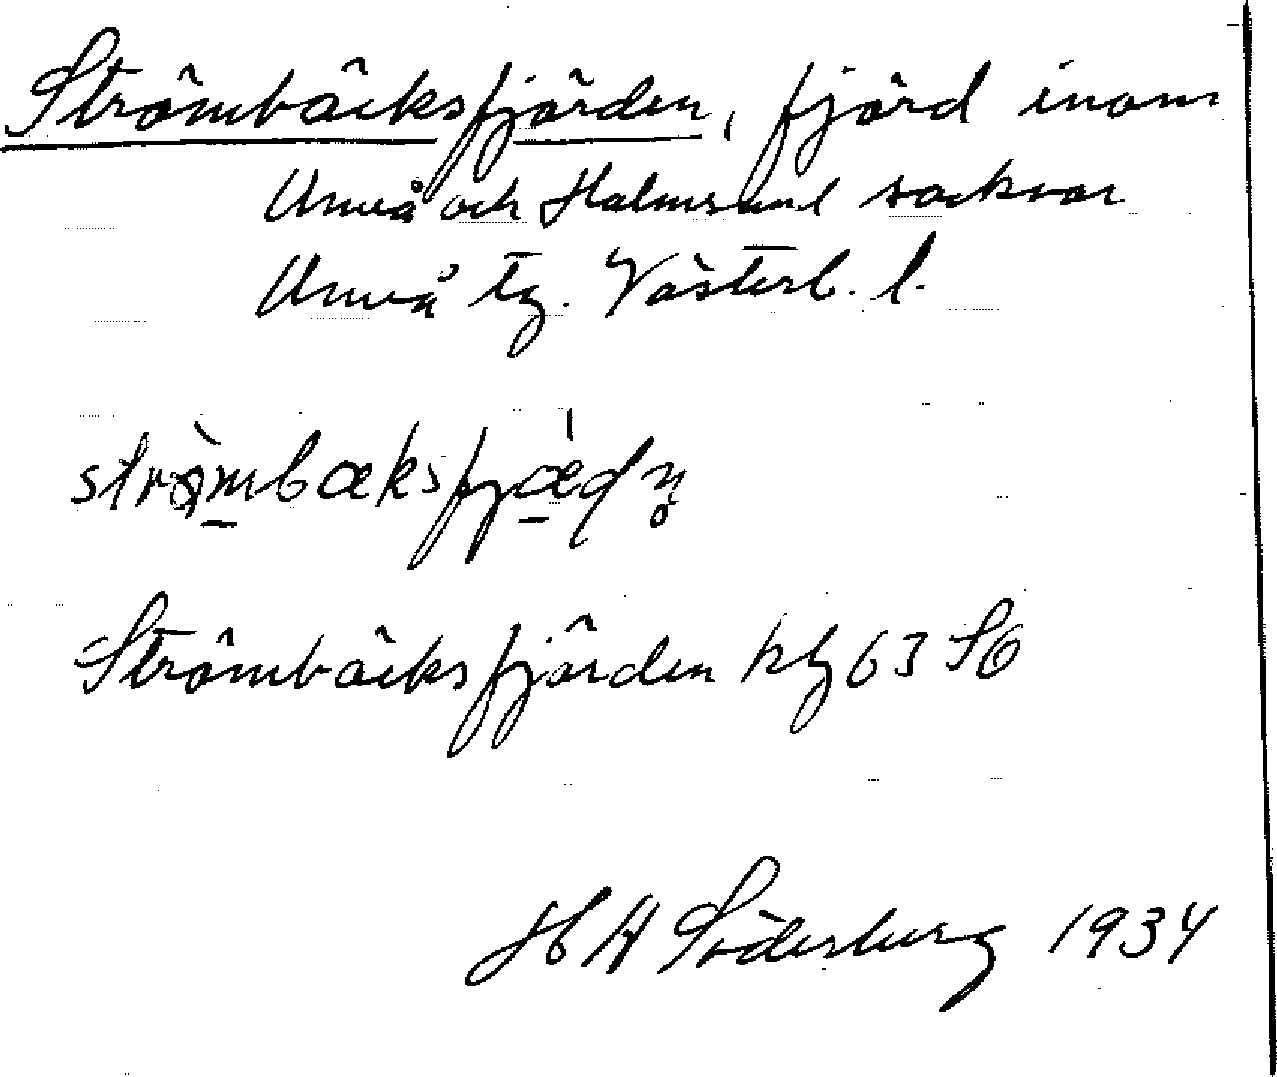 Strömbäcksfjärden, fjärd inom
Umeå och Holmsund socknar
Umeå tg. Västerb. l.
Strömbäcksfjärden 63 SO
H W Söderberg 1934